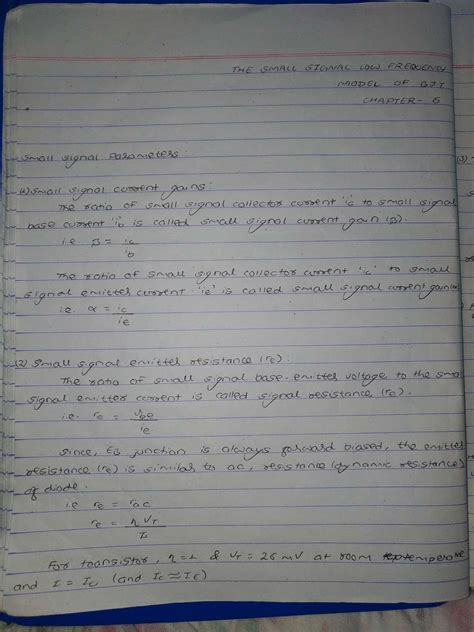 THE SMALL SIGNAL LOW FREQUENCY
MODEL OF BJT
CHAPTER - 6
Small Signal Parameters:
(1) Small signal current gains:
The ratio of small signal collector current 'ic' to small signal
base current 'ib' is called small signal current gain (β).
i.e β = ic
ib
The ratio of small signal collector current 'ic' to small
signal emitter current 'ie' is called small signal current gain
i.e. α = ic
ie
(2) Small signal emitter resistance (re):
The ratio of small signal base-emitter voltage to the small
signal emitter current is called signal resistance (re).
i.e. re = vbe
ie
Since, EB junction is always forward biased, the emitter
resistance (re) is similar to ac, resistance (dynamic resistance)
of diode.
i.e re = rac
re = η VT
I
For transistor, η=1 & VT = 26 mV at room temperature
and I = IC (and IC ≈ IE)